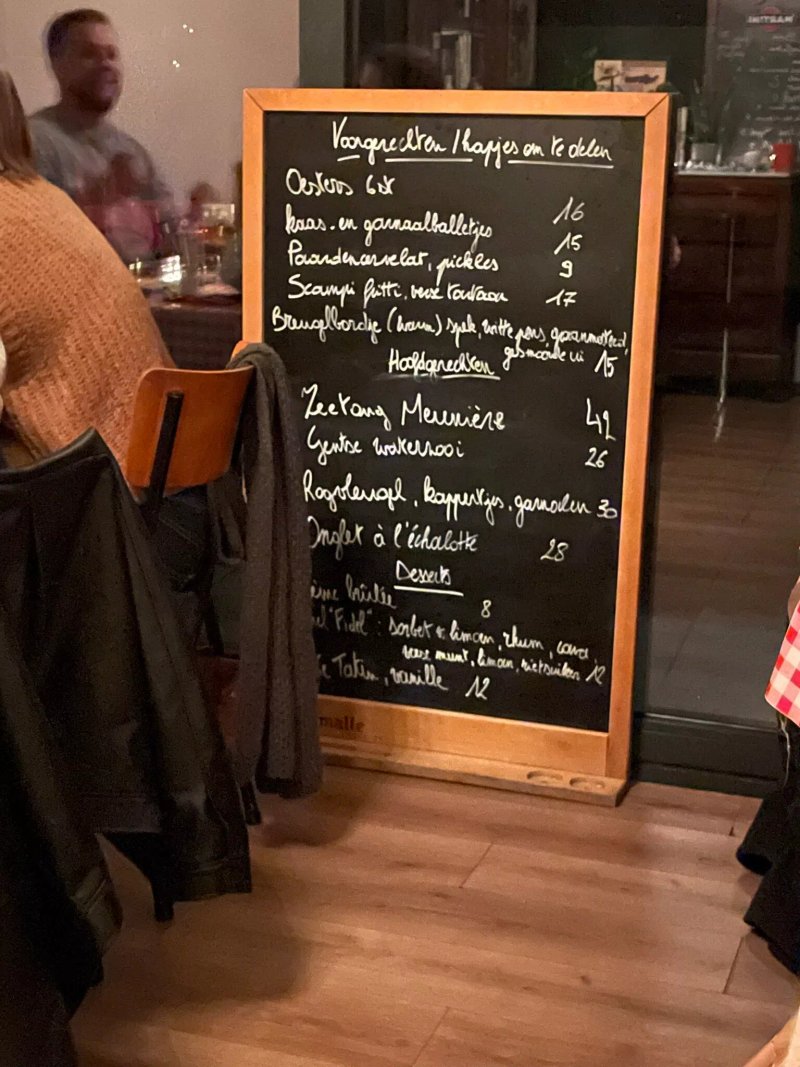 Voorgerechten / hapjes om te delen
Oesters 6st 16
kaas- en garnaalballetjes 15
Paardencervelat, pickles 9
Scampi fritti, verse tartaar 17
Breugelbordje (warm) spek, witte pens,
gesmoorde ui 15
Hoofdgerechten
Zeetong Meunière 42
Gentse waterzooi 26
Rogvleugel, kappertjes, garnalen 30
Onglet à l'échalotte 28
Desserts
brûlée 8
"Fidel": sorbet limoen, rhum, cava
verse munt, limoen, rietsuiker 12
Tatin, vanille 12
malle